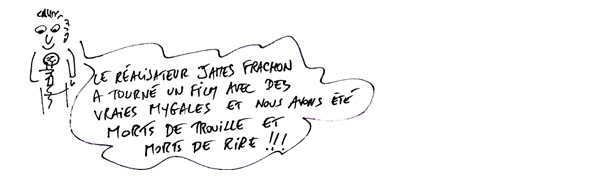 LE RÉALISATEUR JAMES FRACHON
A TOURNÉ UN FILM AVEC DES
VRAIES MYGALES ET NOUS AVONS ÉTÉ
MORTS DE TROUILLE ET
MORTS DE RIRE !!!